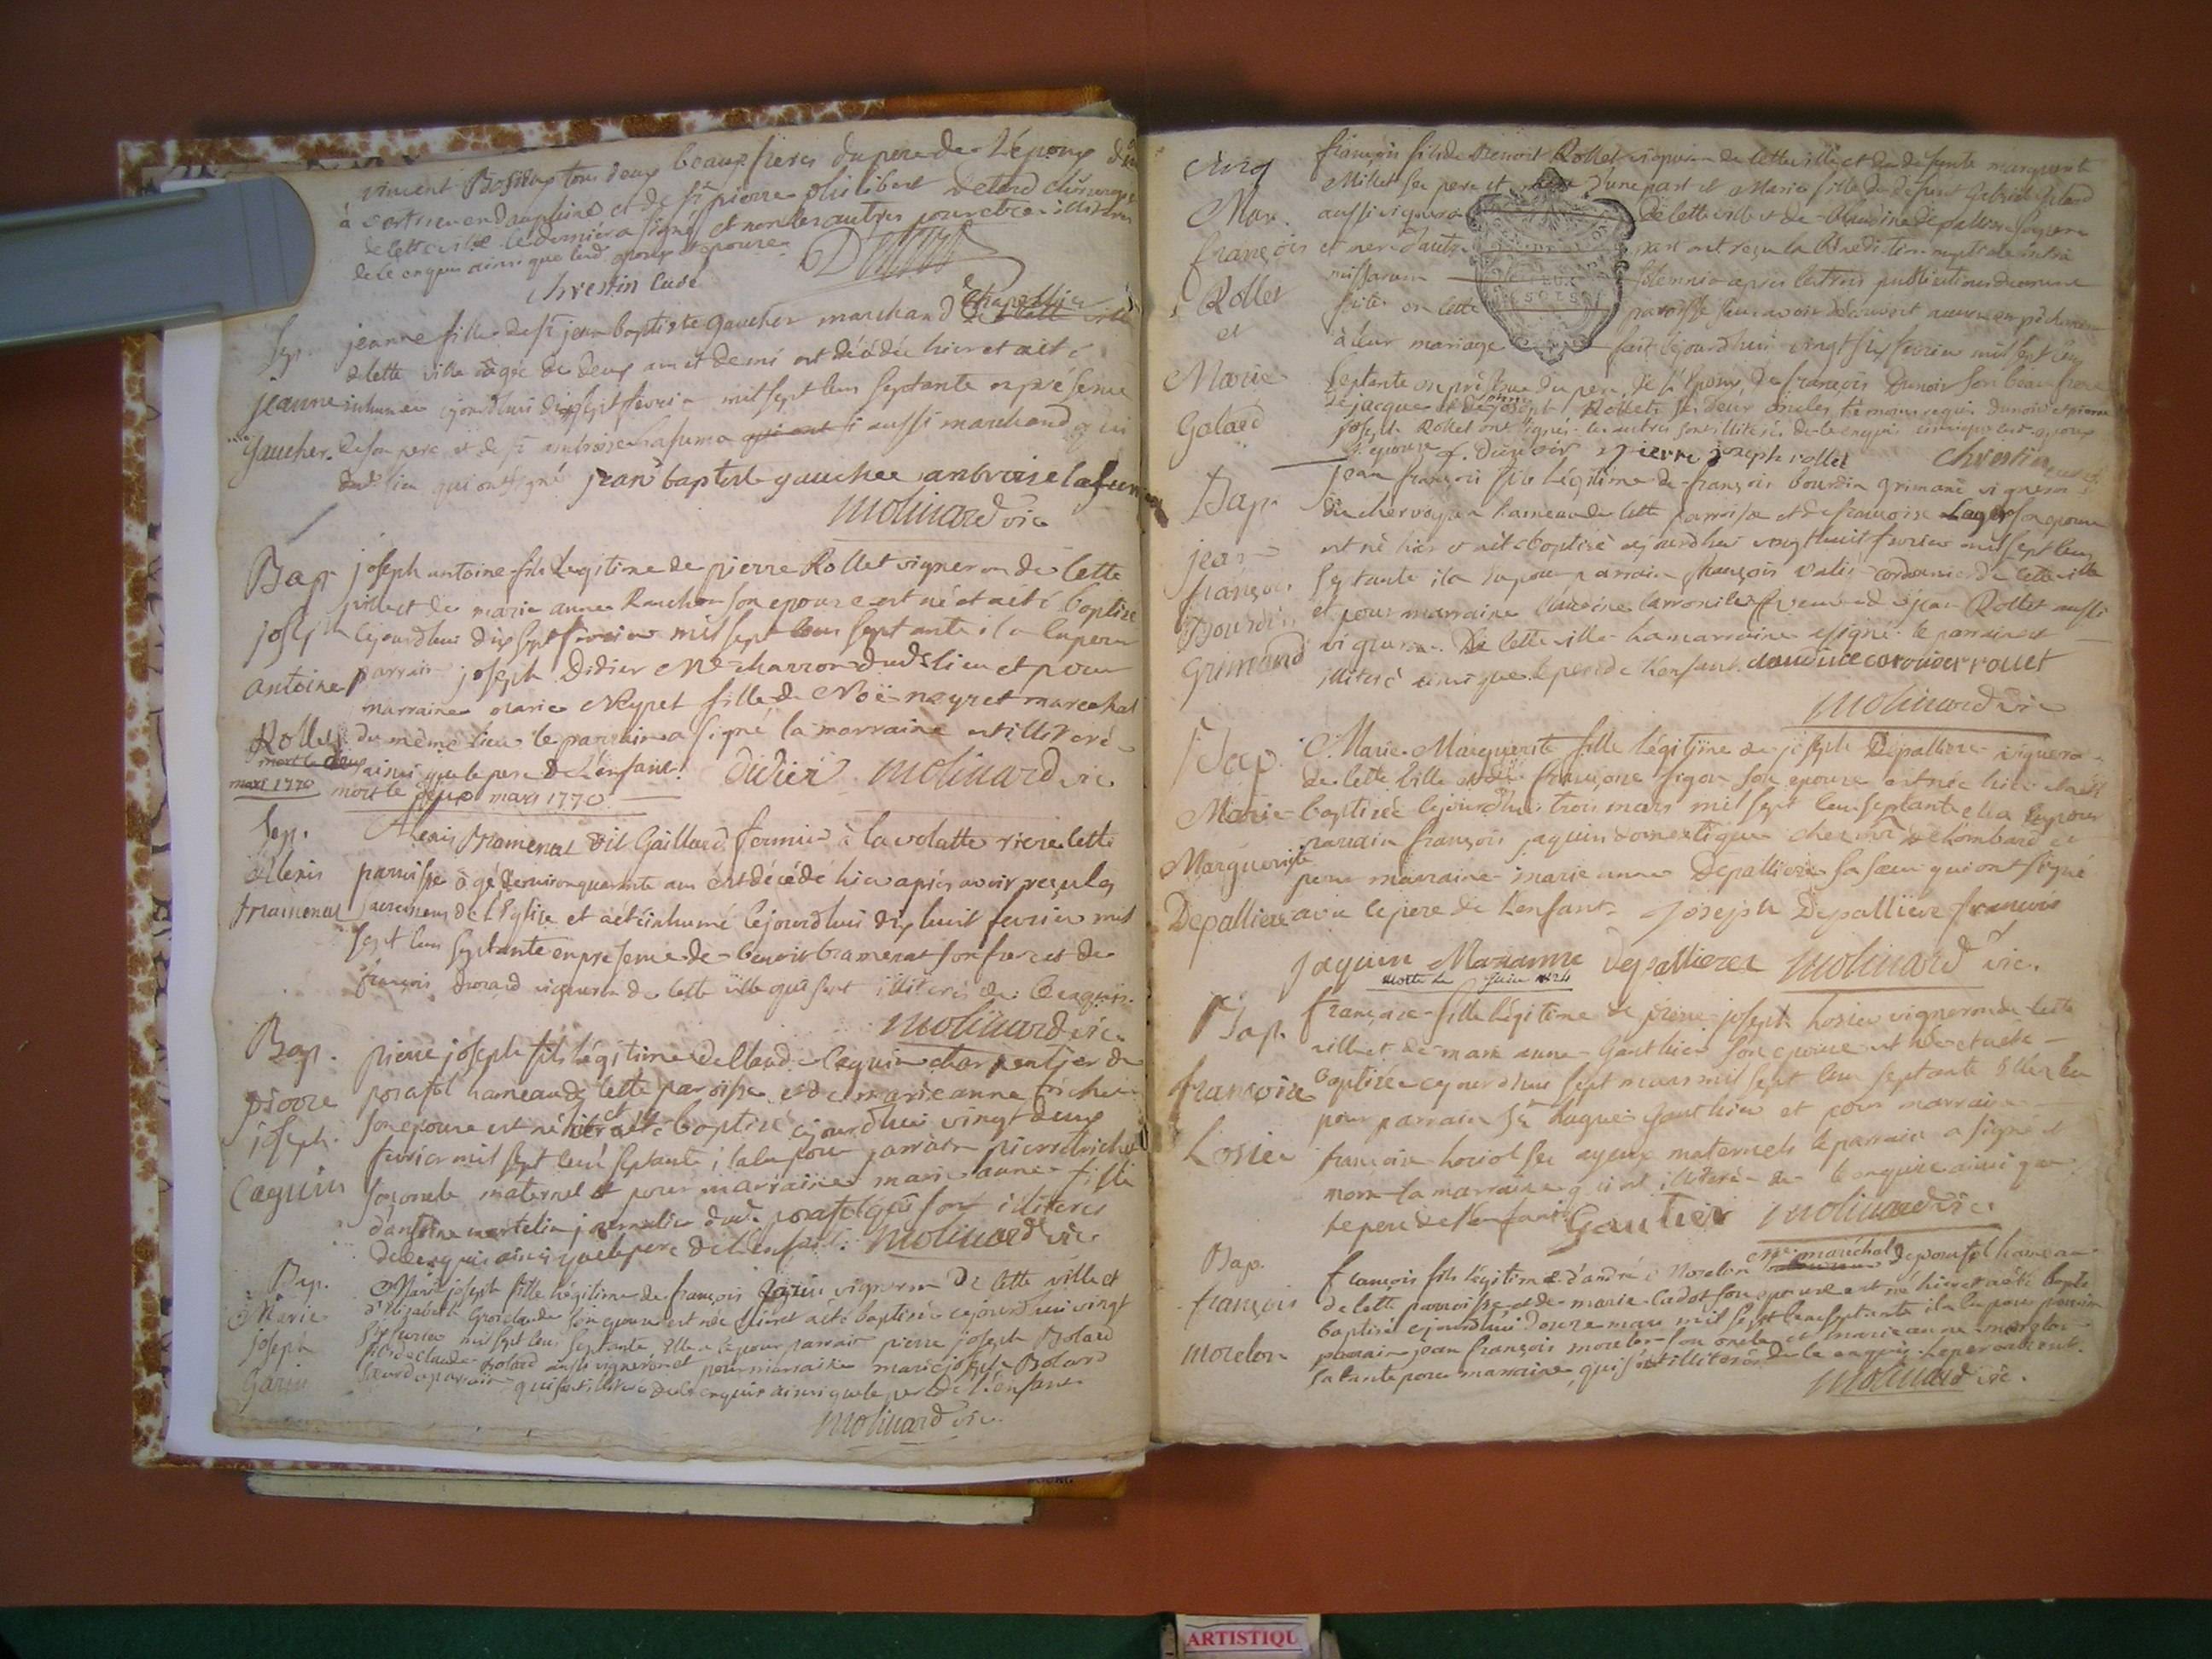 vincent tous deux beaux freres du pere de L'épouse
à en dauphiné et de sr pierre philibert Detard chirurgien
de cette ville le dernier a signé et non les autres pour etre illiteres
de ce enquis ainsi que lesd. époux et épouse
Chrestin Curé
Sep.
jeanne
Gaucher.
jeanne fille de sr jean baptiste Gaucher marchand Chapellier
de cette ville âgée de deux ans et demi est décédée hier et a été
inhumée cejourdhui dix sept fevrier mil sept cens septante en présence
de son pere et de sr ambroise Lafuma aussi marchand
dud. lieu qui ont signé jean baptiste gaucher ambroise lafuma
Molinard vic
Bap
joseph
antoine
Rollet
mort le deux
mars 1770
joseph antoine fils Légitime de pierre Rollet vigneron de cette
ville et de marie anne son epouse est né et a été baptisé
cejourdhui dix sept fevrier mil sept cens septante il a eu pour
parrain joseph Didier Me charron dud. lieu et pour
marraine marie Neyret fille de Noë neyret marechal
du même lieu le parrain a signé la marraine est illiterée
ainsi que le pere De L'enfant. Didier Molinard vic
mort le deux mars 1770
Sep.
Alexis
Bramerat
Alexis Bramerat dit Gaillard fermier à la volatte riere cette
parroisse âgé d'environ quarante ans est décédé hier après avoir reçu les
sacremens de L'Eglise et a été inhumé cejourdhui dix huit fevrier mil
sept cens septante en presence de benoit bramerat son frere et de
françois vigneron de cette ville qui sont illiterés de ce enquis.
Molinard vic
Bap.
pierre
joseph
Caquin
pierre joseph fils légitime de Claude Caquin charpentier de
porafol hameau de cette paroisse et de marie anne
son epouse est né hier et a été baptisé cejourdhui vingt deux
fevrier mil sept cens septante il a eu pour parrain pierre
son oncle maternel et pour marraine marie anne fille
d'antoine martelin journalier dud. porafol qui sont illiteres
de ce enquis ainsi que le pere de L'enfant. Molinard vic
Bap.
Marie
joseph
Garin
Marie joseph fille Légitime de françois Garin vigneron De cette ville et
d'Elizabeth son epouse est née hier et a été baptisée cejourdhui vingt
six fevrier mil sept cens septante Elle a eu pour parrain pierre joseph Bolard
fils de claude Bolard aussi vigneron et pour marraine marie josephe Bolard
soeur du parrain qui sont illiterés de ce enquis ainsi que le pere de L'enfant
Molinard vic.
Cinq
Mar.
françois
Rollet
et
Marie
Galard
françois fils de Benoit Rollet vigneron de cette ville et de defunte marguerite
Millet ses pere et mere d'une part et Marie fille de defunt Gabriel Galard
aussi vigneron de cette ville et de Claudine Depalliere ses pere
et mere d'autre part ont reçu la bénédiction nuptiale intra
missarum solemnia après les trois publications
faites en cette paroisse sans avoir découvert aucun empêchement
à leur mariage fait cejourdhui vingt six fevrier mil sept cens
septante en présence du pere de l'époux, de françois Dunoir son beau frere
de jacque et de joseph Rollet ses deux oncles témoins requis dunoir et pierre
joseph Rollet ont signé les autres sont illiterés de ce enquis ainsi que les époux
et epouse f. dunoir pierre joseph rollet Chrestin curé
Bap.
jean
françois
Bourdin
Grimand
jean françois fils légitime de françois bourdin Grimand vigneron
de hameau de cette parroisse et de françoise Lager son epouse
est né hier et a été baptisé cejourdhui vingt huit fevrier mil sept cens
septante il a eu pour parrain françois cordonnier de cette ville
et pour marraine Claudine femme de jean Rollet aussi
vigneron De cette ville la marraine a signé le parrain est
illiteré ainsi que le pere de L'enfant. claudine rollet
Molinard vic
Bap.
Marie
Marguerite
Depalliere
Marie Marguerite fille légitime de joseph Depalliere vigneron
de cette ville et de françoise son epouse est née hier et a été
baptisée cejourdhui trois mars mil sept cens septante elle a eu pour
parrain françois jaquin domestique chez mr de Lombard et
pour marraine marie anne Depalliere sa soeur qui ont signé
avec le pere de L'enfant. Joseph Depalliere francois
jaquin Marianne Depalliere Molinard vic.
morte le juin
Bap.
françoise
Losier
françoise fille légitime de pierre joseph Losier vigneron de cette
ville et de marie anne Gauthier son epouse est née et a été
baptisée cejourdhui sept mars mil sept cens septante Elle a eu
pour parrain sr hugues Gauthier et pour marraine
françoise ses ayeux maternels le parrain a signé et
non la marraine qui est illiterée de ce enquise ainsi que
le pere de L'enfant Gautier Molinard vic.
Bap.
françois
morelon
françois fils légitime d'andré Morelon Me maréchal de porafol hameau
de cette parroisse et de marie cadot son epouse est né hier et a été baptisé
baptisé cejourdhui douze mars mil sept cens septante il a eu pour parrain
parrain jean françois morelon son oncle et marie anne morelon
sa tante pour marraine qui sont illiterés de ce enquis le pere absent.
Molinard vic.
ARTISTIQU